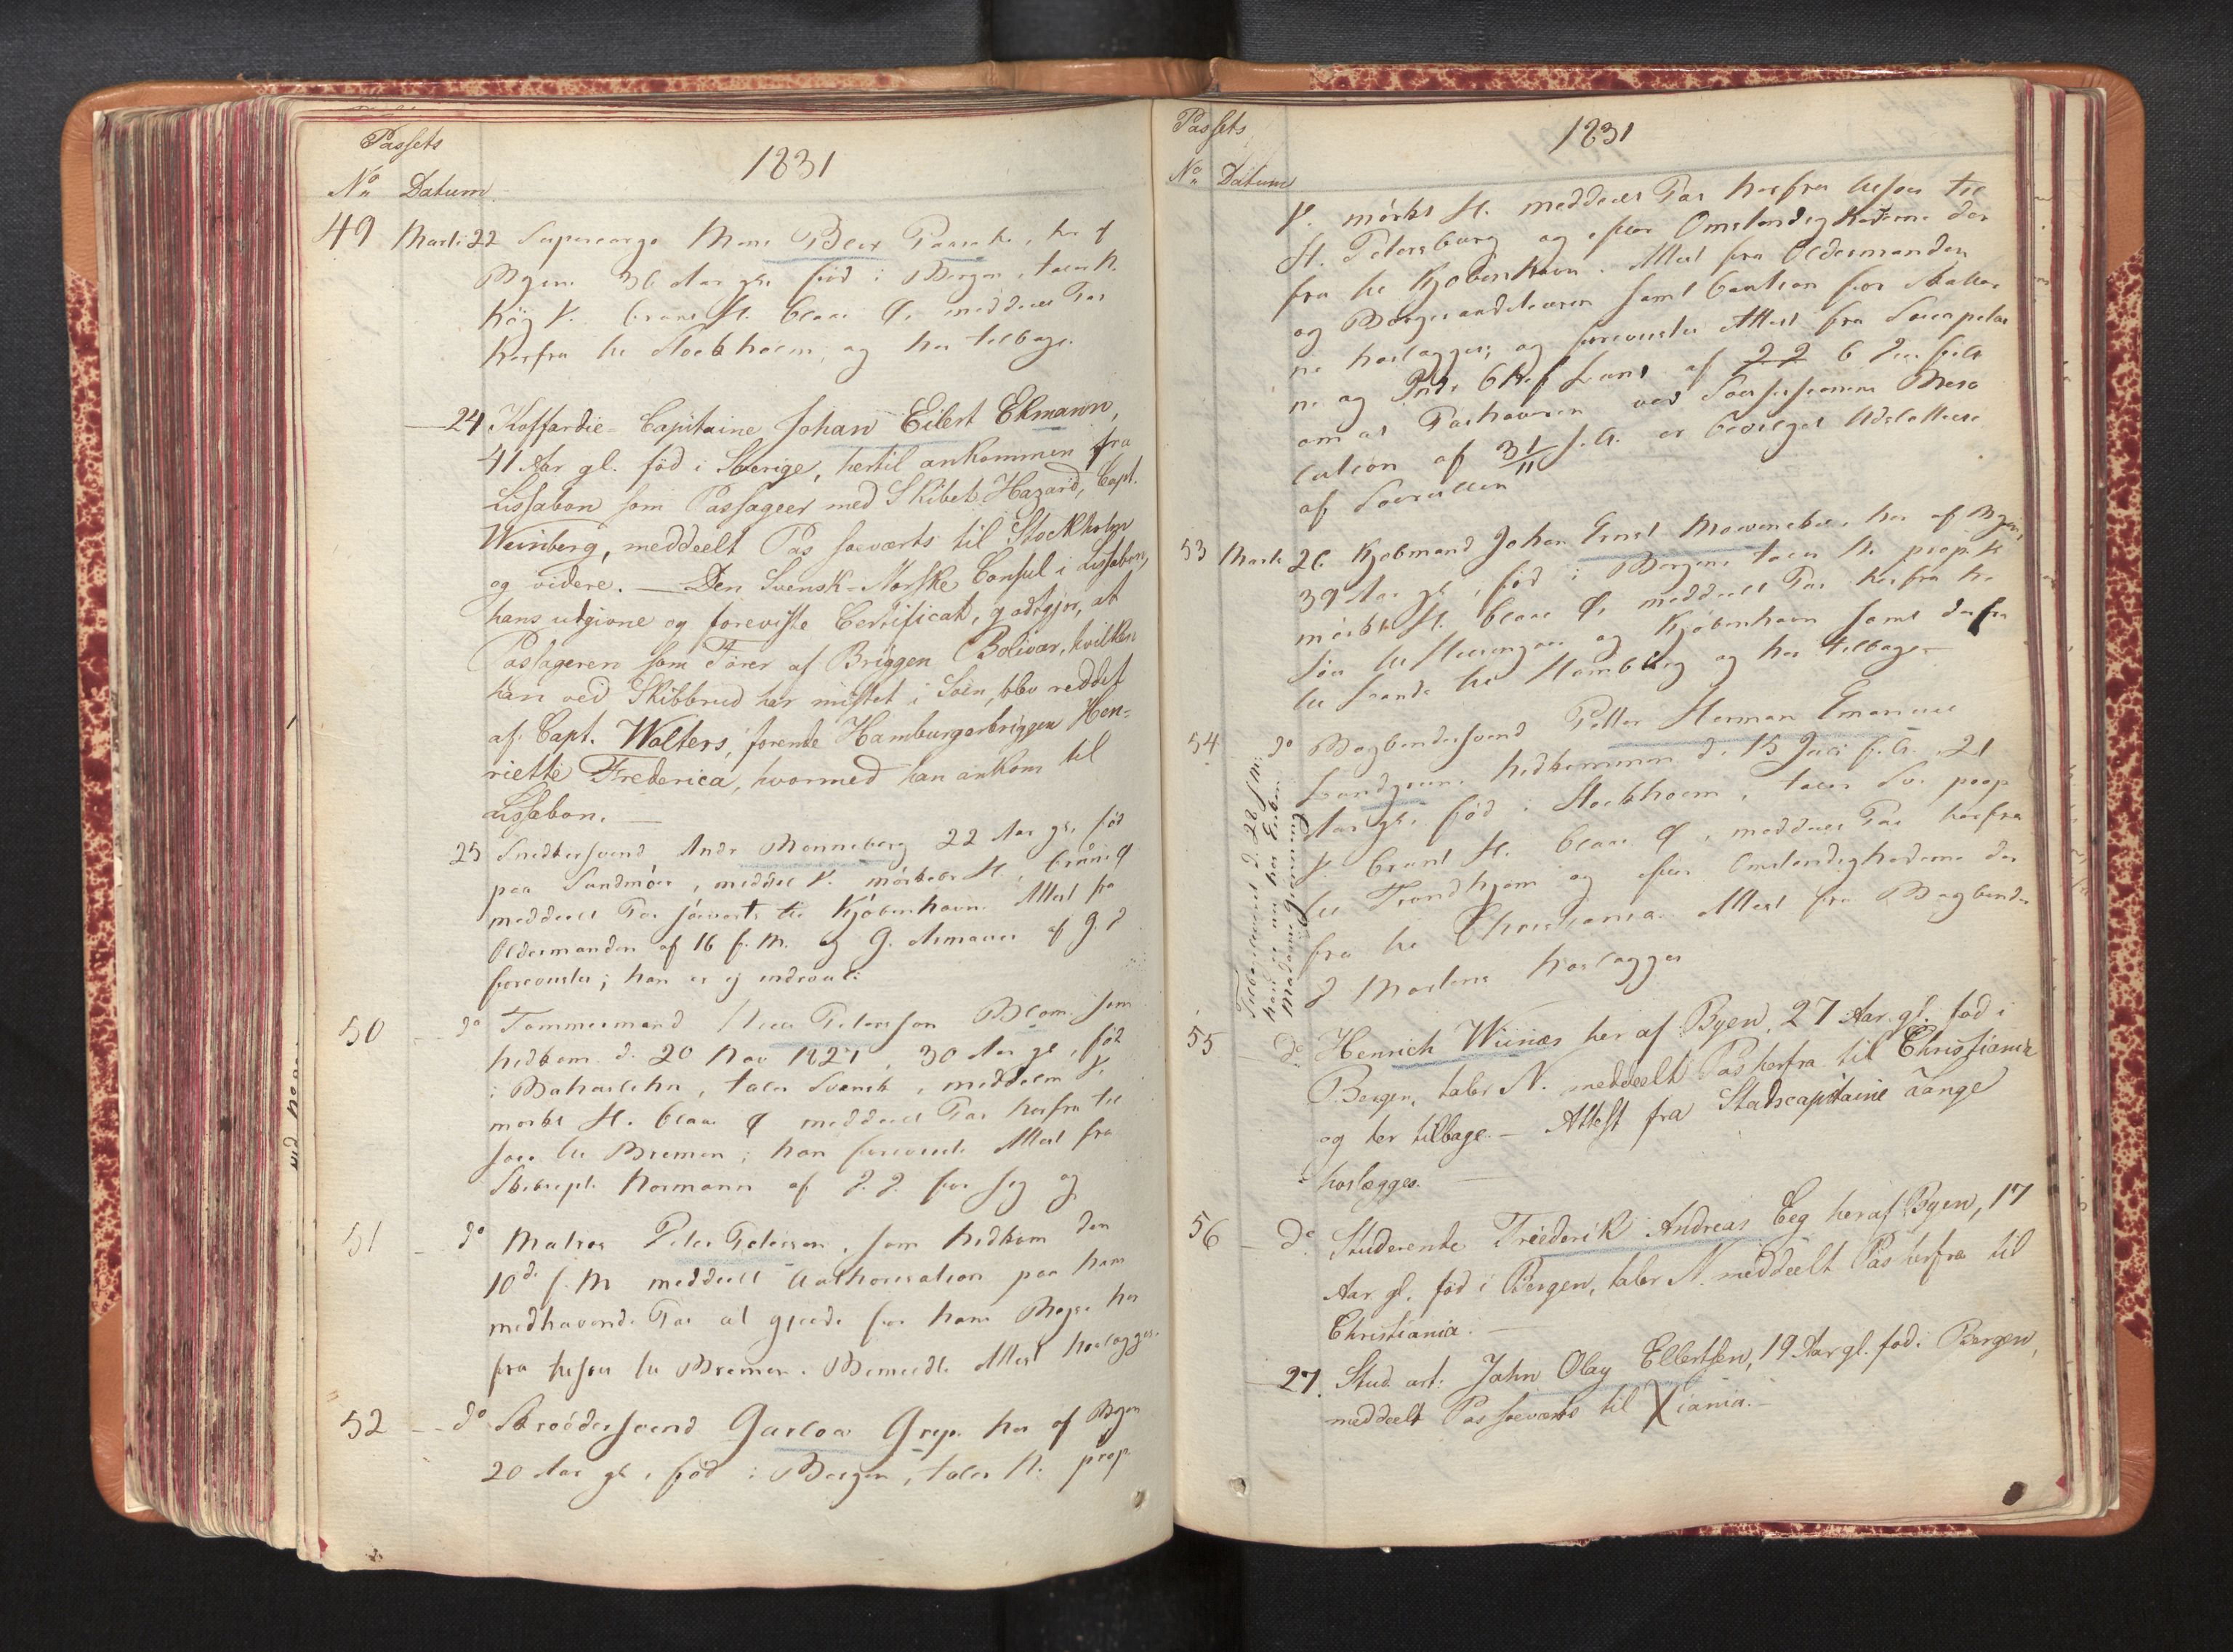 Passets
1831
No Datum
49 Marti 22 Supercargo Mons Beer her af
Byen 36 Aar gl. fød i Bergen, taler N.
høg V. brune H. blaae Ø. meddeelt Pas
herfra til Stockholm, og her tilbage.
24 Koffardie-Capitaine Johan Eilert Ekmann,
41 Aar gl. fød i Sverige, hertil ankommen fra
Lissabon som Passageer med Skibet Hazard, Capt.
Weinberg, meddeelt Pas søeværts til Stockholm
og videre. — Den Svensk-Norske Consul i Lissabon,
hans udgivne og foreviste Certificat, godtgjør, at
Passageren som Fører af Briggen Bolivar, hvilken
han ved Skibbrud har mistet i Søen, blev reddet
af Capt. Walters, førende Hamburgerbriggen Hen-
riette Frederica, hvormed han ankom til
Lissabon. —
25 Snedkersvend Andr Monneberg 22 Aar gl. fød
paa Sundmør, middel V. mørkebr H, brune Ø
meddeelt Pas søeværts til Kjøbenhavn. Attest fra
Oldermanden af 16 f. M. og G. af g. D
forevistes; han er ej indrouleret
50 do Tømmermand Petersson Blom som
hidkom d. 20 Nov 1827, 30 Aar gl, fød
i Bahuslehn, taler Svensk, middelm V.
mørkt H. blaae Ø meddeelt Pas herfra til
Søes til Bremen; han foreviste Attest fra
Normann af D. D. for sig og
51 do Matros Peter Petersen, som hidkom den
10de f. M meddeelt Authorisation paa ham
medhavende Pas at gjelde for hans Reyse her
fra tilsøes til Bremen. Bemeldte Attest henlægges.
52 do Skrædersvend Garloa Grip her af Byen
20 Aar gl. fød i Bergen, taler N. prop
Passets
1831
No Datum
V. mørkt H. meddeelt Pas herfra tilsøes til
St. Petersburg og efter Omstændighederne der
fra til Kjøbenhavn. Attest fra Oldermanden
og Borger samt Caution for Skatter
ne henlægges; og forevistes Attest fra
ne og af 22 6 D.
om at Pashaveren ved Sessionen
cation af 31/11 f. A. er bevilget Udslettelse
af Søerullen
53 Marti 26 Kjøbmand Johan Ernst Mowinckel her af Byen,
39 Aar gl, fød i Bergen taler N. prop. V.
mørkt H. blaae Ø. meddeelt Pas herfra til
Søes til Helsingør og Kjøbenhavn samt derfra
til Lands til Hamburg og her tilbage —
54 do Bogbindersvend Petter Herman Emanuel
Lundgreen hidkommen d. 15 Juli f. A. 21
Aar gl. fød i Stockholm, taler Sv. prop
V. brunt H. blaae Ø, meddeelt Pas herfra
til Trondhjem og efter Omstændighederne der
fra til Christiania. Attest fra Bogbinder
J Martens henlægges
Tilbageleveret d. 28 f. M.
55 do Henrich Wiinæs her af Byen, 27 Aar gl. fød i
Bergen, taler N. meddeelt Pas herfra til Christiania
og her tilbage. — Attest fra Stadscapitaine Aange
henlægges. —
56 do Studerende Friederik Andreas Eeg her af Byen, 17
Aar gl. fød i Bergen, taler N. meddeelt Pas herfra til
Christiania. —
27. Stud. art: Jahn Olay Ellertsen, 19 Aar gl. fød i Bergen,
meddeelt Pas søeværts til Xiania. —